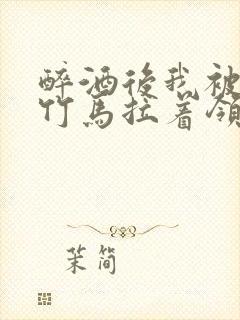 醉酒後我被
竹馬拉着領
茉简